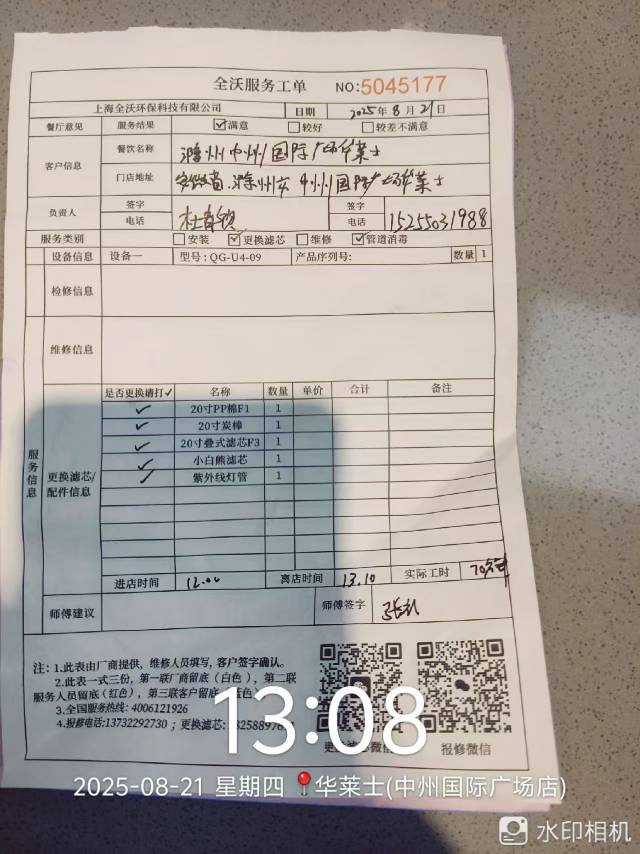 全沃服务工单 NO:5045177
上海全沃环保科技有限公司 日期 2025年8月21日
餐厅意见 服务结果 ☑满意 ☐较好 ☐较差不满意
客户信息 餐饮名称 滁州中州国际广场华莱士
门店地址 安徽省滁州市中州国际广场华莱士
负责人 签字 签字
电话 电话 15255031988
服务类别 ☐安装 ☑更换滤芯 ☐维修 ☑管道消毒
设备信息 设备一 型号:QG-U4-09 产品序列号: 数量 1
检修信息
维修信息
服务信息
是否更换请打✓ 名称 数量 单价 合计 备注
✓ 20寸PP棉F1 1
✓ 20寸炭棒 1
✓ 20寸叠式滤芯F3 1
✓ 小白熊滤芯 1
✓ 紫外线灯管 1
更换滤芯/
配件信息
进店时间 12.00 离店时间 13.10 实际工时 70分钟
师傅建议 师傅签字
注:1.此表由厂商提供,维修人员填写,客户签字确认。
2.此表一式三份,第一联厂商留底(白色),第二联
服务人员留底(红色),第三联客户留底(蓝色)
3.全国服务热线:4006121926
4.报修电话:13732292730;更换滤芯:
报修微信
13:08
2025-08-21 星期四 华莱士(中州国际广场店)
水印相机